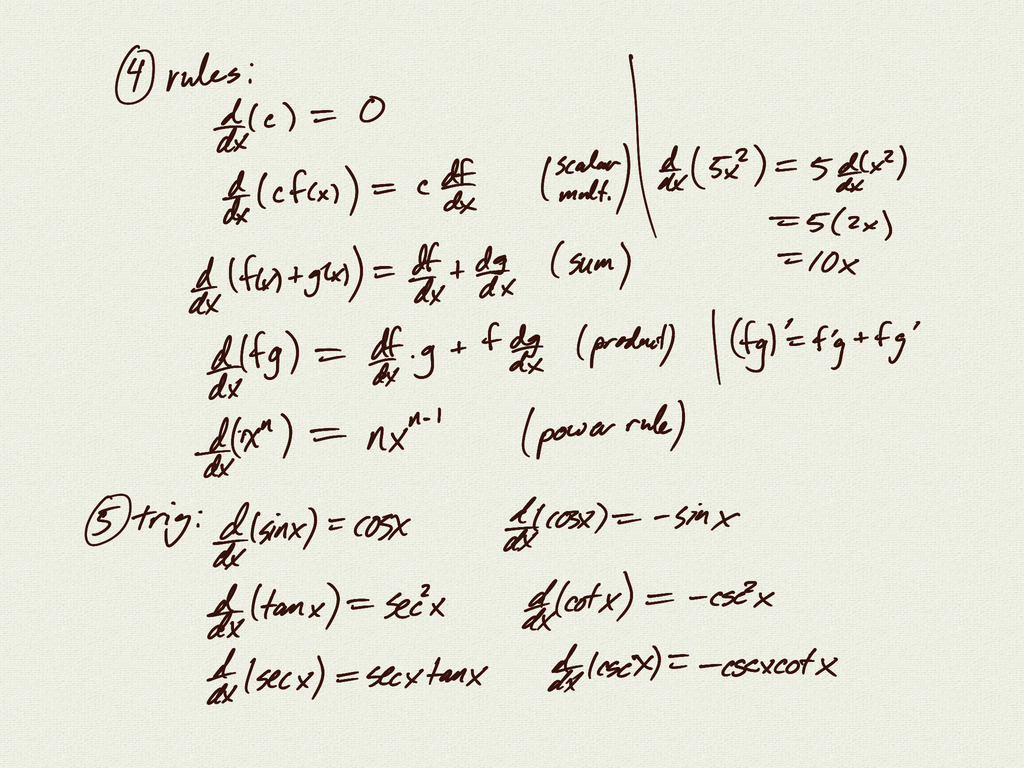 ④ rules:
d/dx (c) = 0
d/dx (c f(x)) = c df/dx (scalar mult.) | d/dx (5x²) = 5 d/dx (x²)
= 5(2x)
= 10x
d/dx (f(x) + g(x)) = df/dx + dg/dx (sum)
d/dx (fg) = df/dx · g + f dg/dx (product) | (fg)' = f'g + fg'
d/dx (xⁿ) = nxⁿ⁻¹ (power rule)
⑤ trig: d/dx (sinx) = cosx d/dx (cosx) = -sinx
d/dx (tanx) = sec²x d/dx (cotx) = -csc²x
d/dx (secx) = secxtanx d/dx (cscx) = -cscxcotx